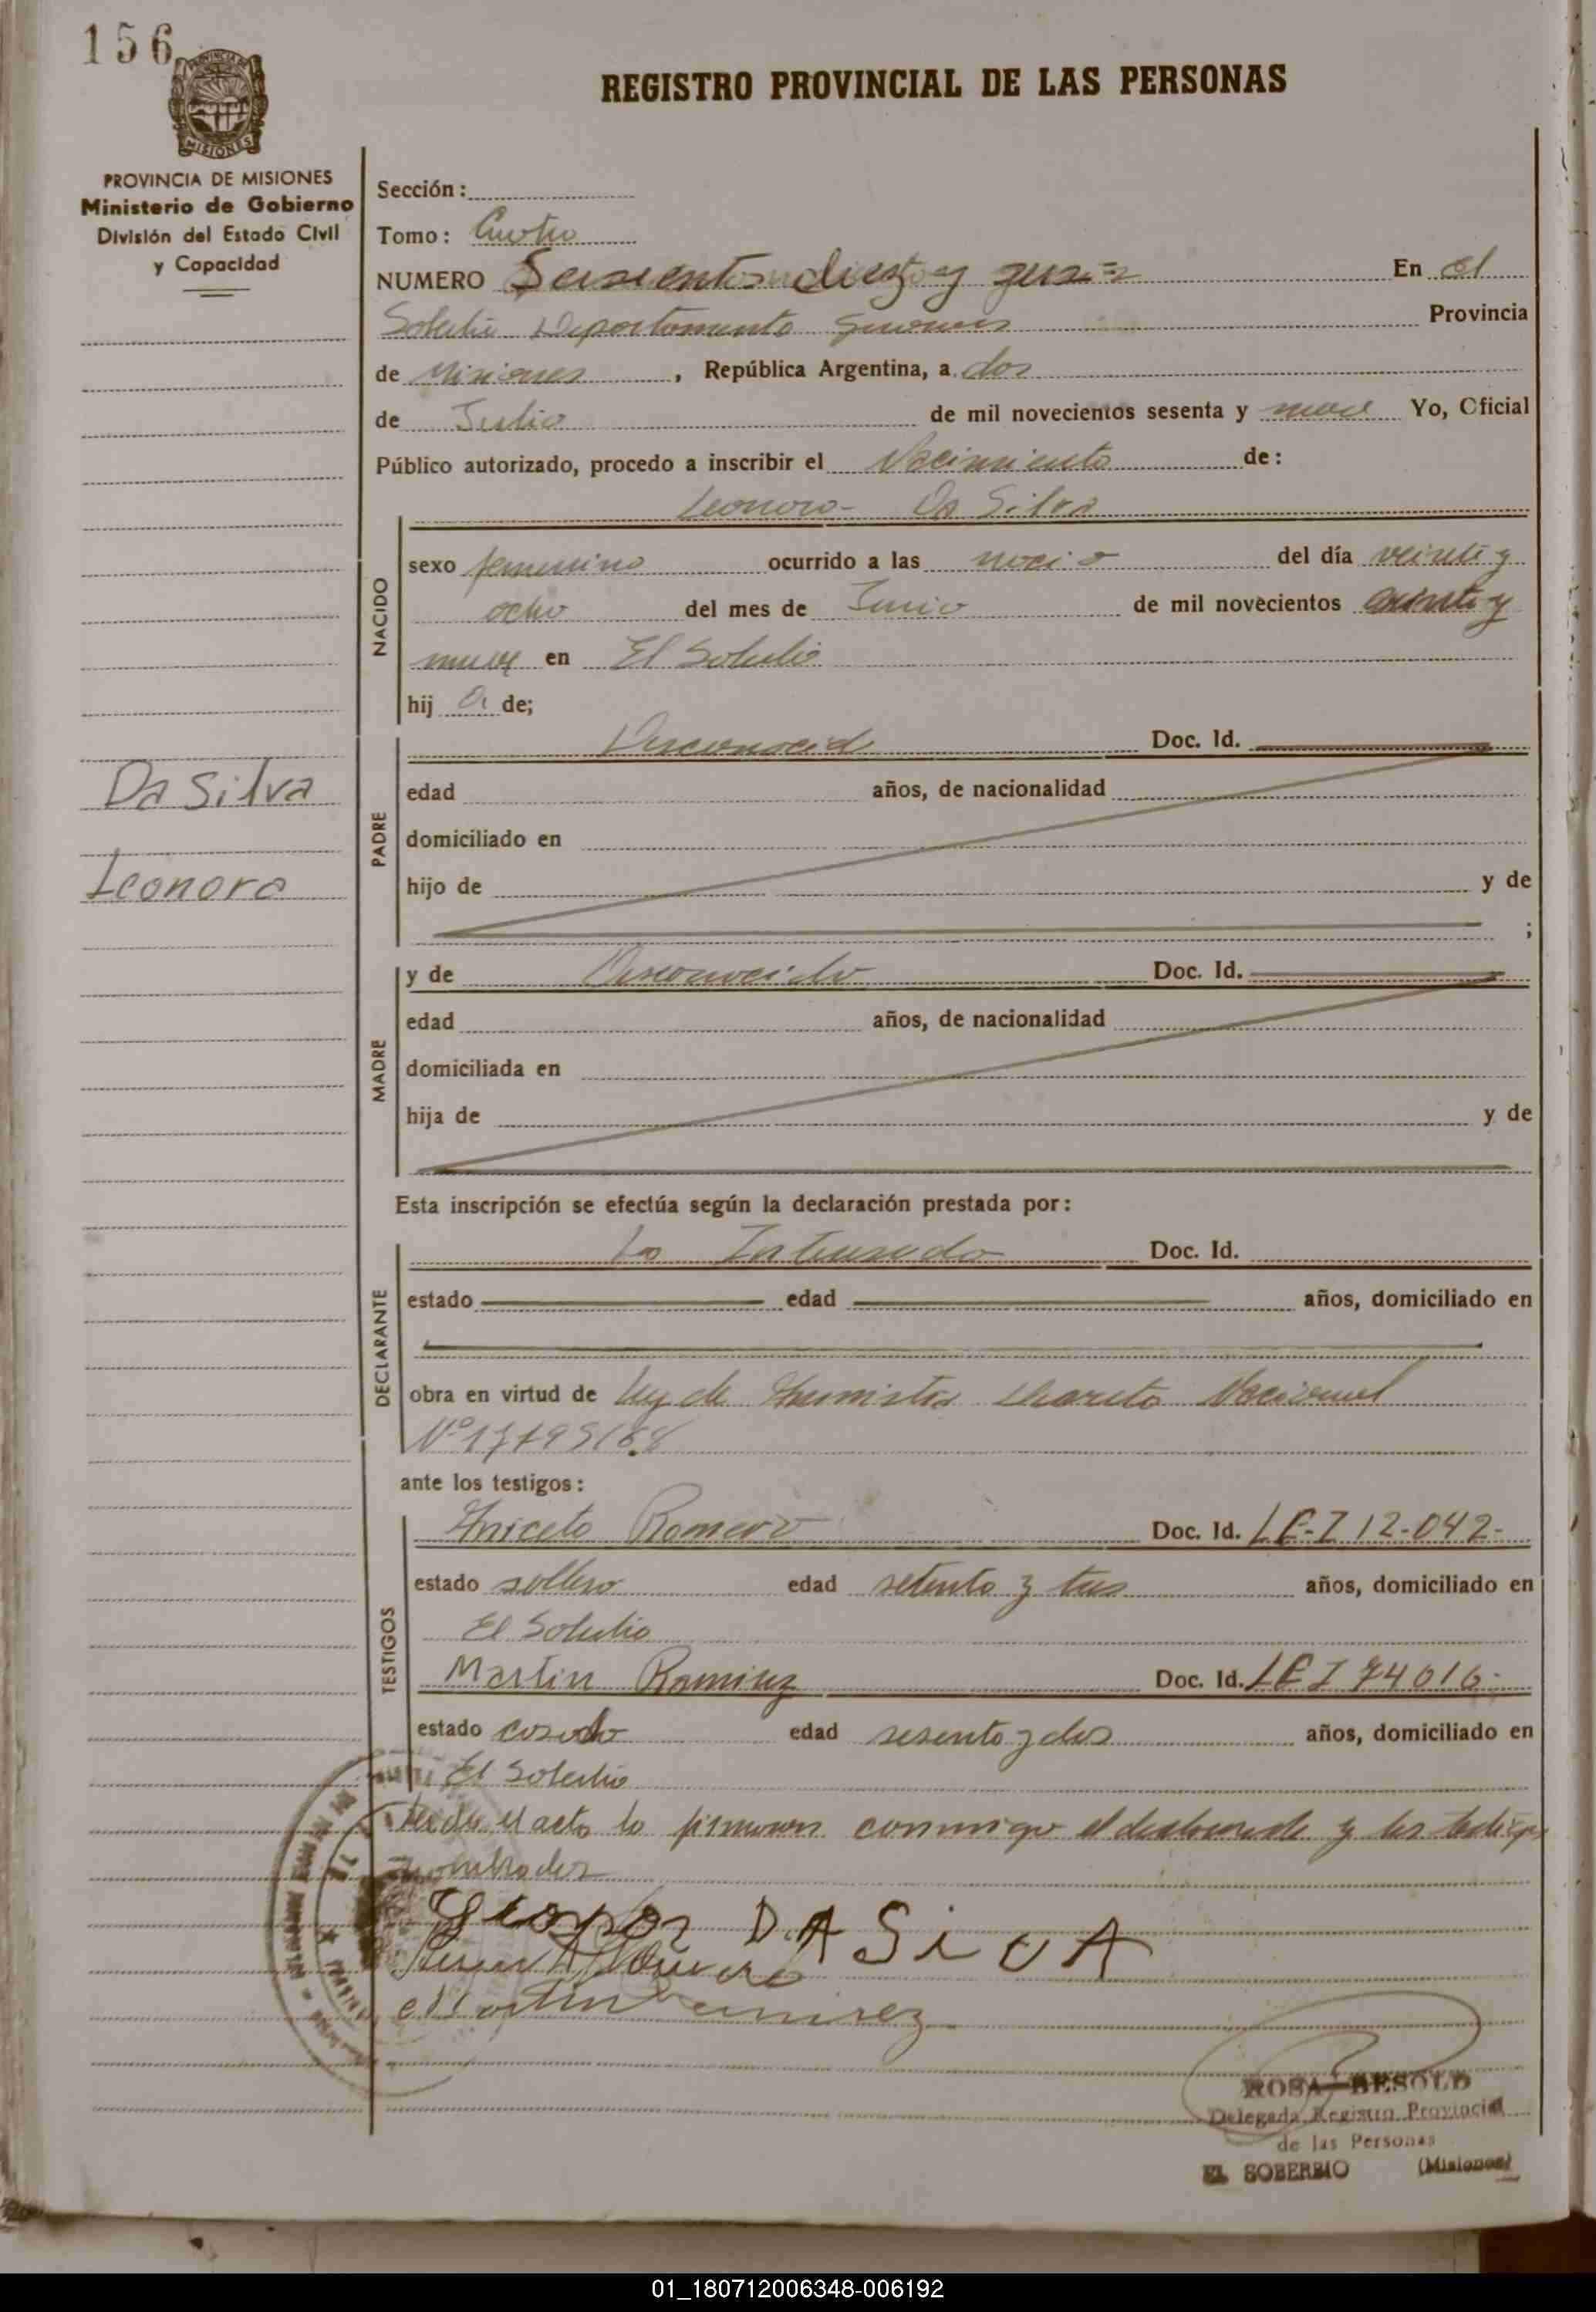 156
PROVINCIA DE MISIONES
Ministerio de Gobierno
División del Estado Civil
y Capacidad
REGISTRO PROVINCIAL DE LAS PERSONAS
Sección:
Tomo: Cuatro
NUMERO diez y En El
Departamento Provincia
de Misiones, República Argentina, a dos
de Julio de mil novecientos sesenta y Yo, Oficial
Público autorizado, procedo a inscribir el Nacimiento de:
Leonora- Da Silva
NACIDO
sexo femenino ocurrido a las del día veinti y
ocho del mes de Junio de mil novecientos
nueve en El Soberbio
hij a de;
PADRE
Doc. Id.
edad años, de nacionalidad
domiciliado en
hijo de y de
;
Da Silva
Leonora
MADRE
y de Desconocido Doc. Id.
edad años, de nacionalidad
domiciliada en
hija de y de
Esta inscripción se efectúa según la declaración prestada por:
DECLARANTE
La Interesada Doc. Id.
estado edad años, domiciliado en
obra en virtud de Ley de Nacional
ante los testigos:
TESTIGOS
Aniceto Romero Doc. Id.
estado soltero edad setenta y tres años, domiciliado en
El Soberbio
Martin Ramirez Doc. Id.
estado casado edad sesenta y dos años, domiciliado en
El Soberbio
Leida el acta la firman conmigo el declarante y los testigos
nombrados
DA SiLVA
Martin Ramirez
ROSA BESOLD
Delegada Registro Provincial
de las Personas
EL SOBERBIO (Misiones)
01_180712006348-006192